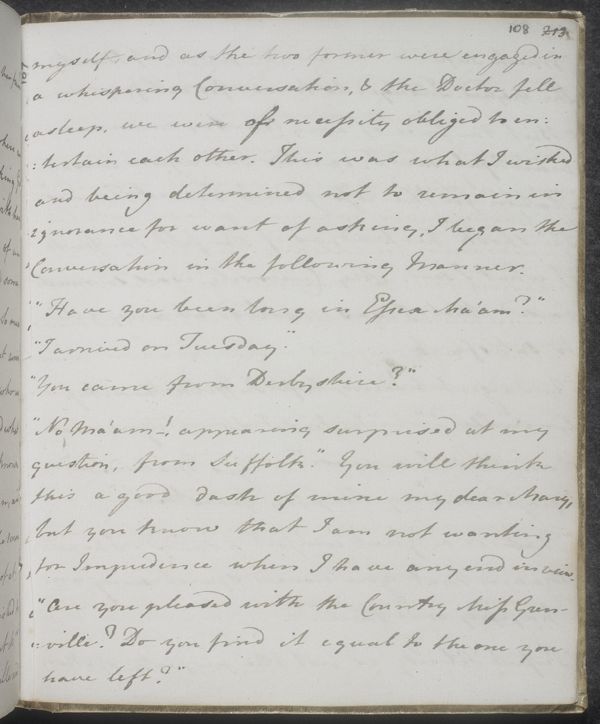 108 213
myself, and as the two former were engaged in
a whispering Conversation, & the Doctor fell
asleep, we were of necessity obliged to en:
:tertain each other. This was what I wished
and being determined not to remain in
ignorance for want of asking, I began the
Conversation in the following Manner.
"Have you been long in Essex Ma'am?"
"I arrived on Tuesday."
"You came from Derbyshire?"
"No Ma'am! appearing surprised at my
question, from Suffolk." You will think
this a good dash of mine my dear Mary,
but you know that I am not wanting
for Impudence when I have any end in veiw.
"Are you pleased with the Country Miss Gren-
-ville? Do you find it equal to the one you
have left?"